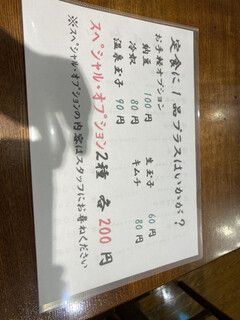 定食に1品プラスはいかが?
お手軽オプション
納豆 100円 生玉子 60円
冷奴 80円 キムチ 80円
温泉玉子 90円
スペシャル・オプション2種 各200円
※スペシャル・オプションの内容はスタッフにお尋ねください